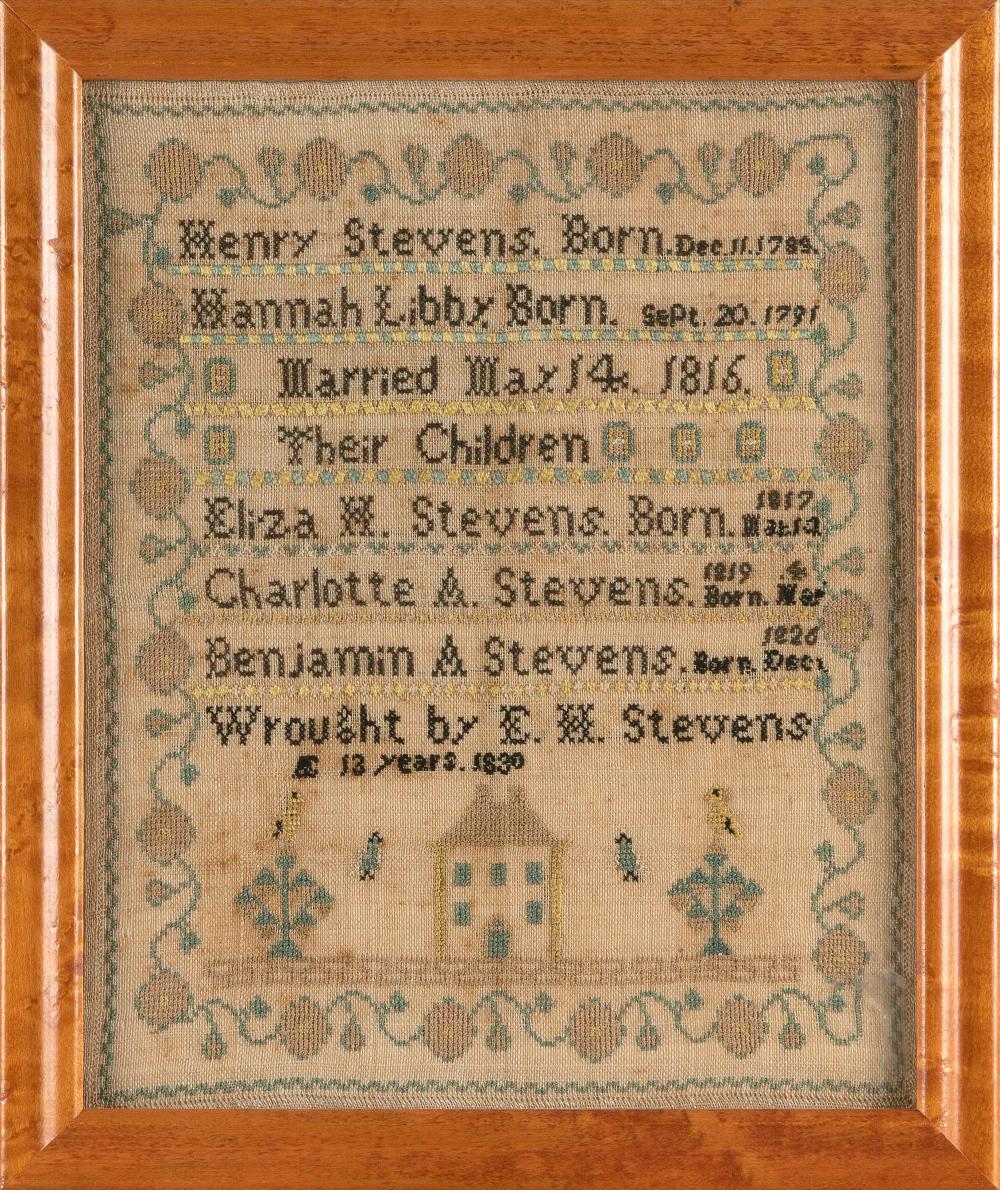 Henry Stevens. Born. Dec. 11. 1785.
Hannah Libby Born. Sept. 20. 1791
Married May 14. 1816.
Their Children
Eliza H. Stevens. Born. 1817
Charlotte A. Stevens. Born. 1819 4
Benjamin A Stevens. Born. Dec. 1826
Wrought by E. H. Stevens
Æ 13 years. 1830